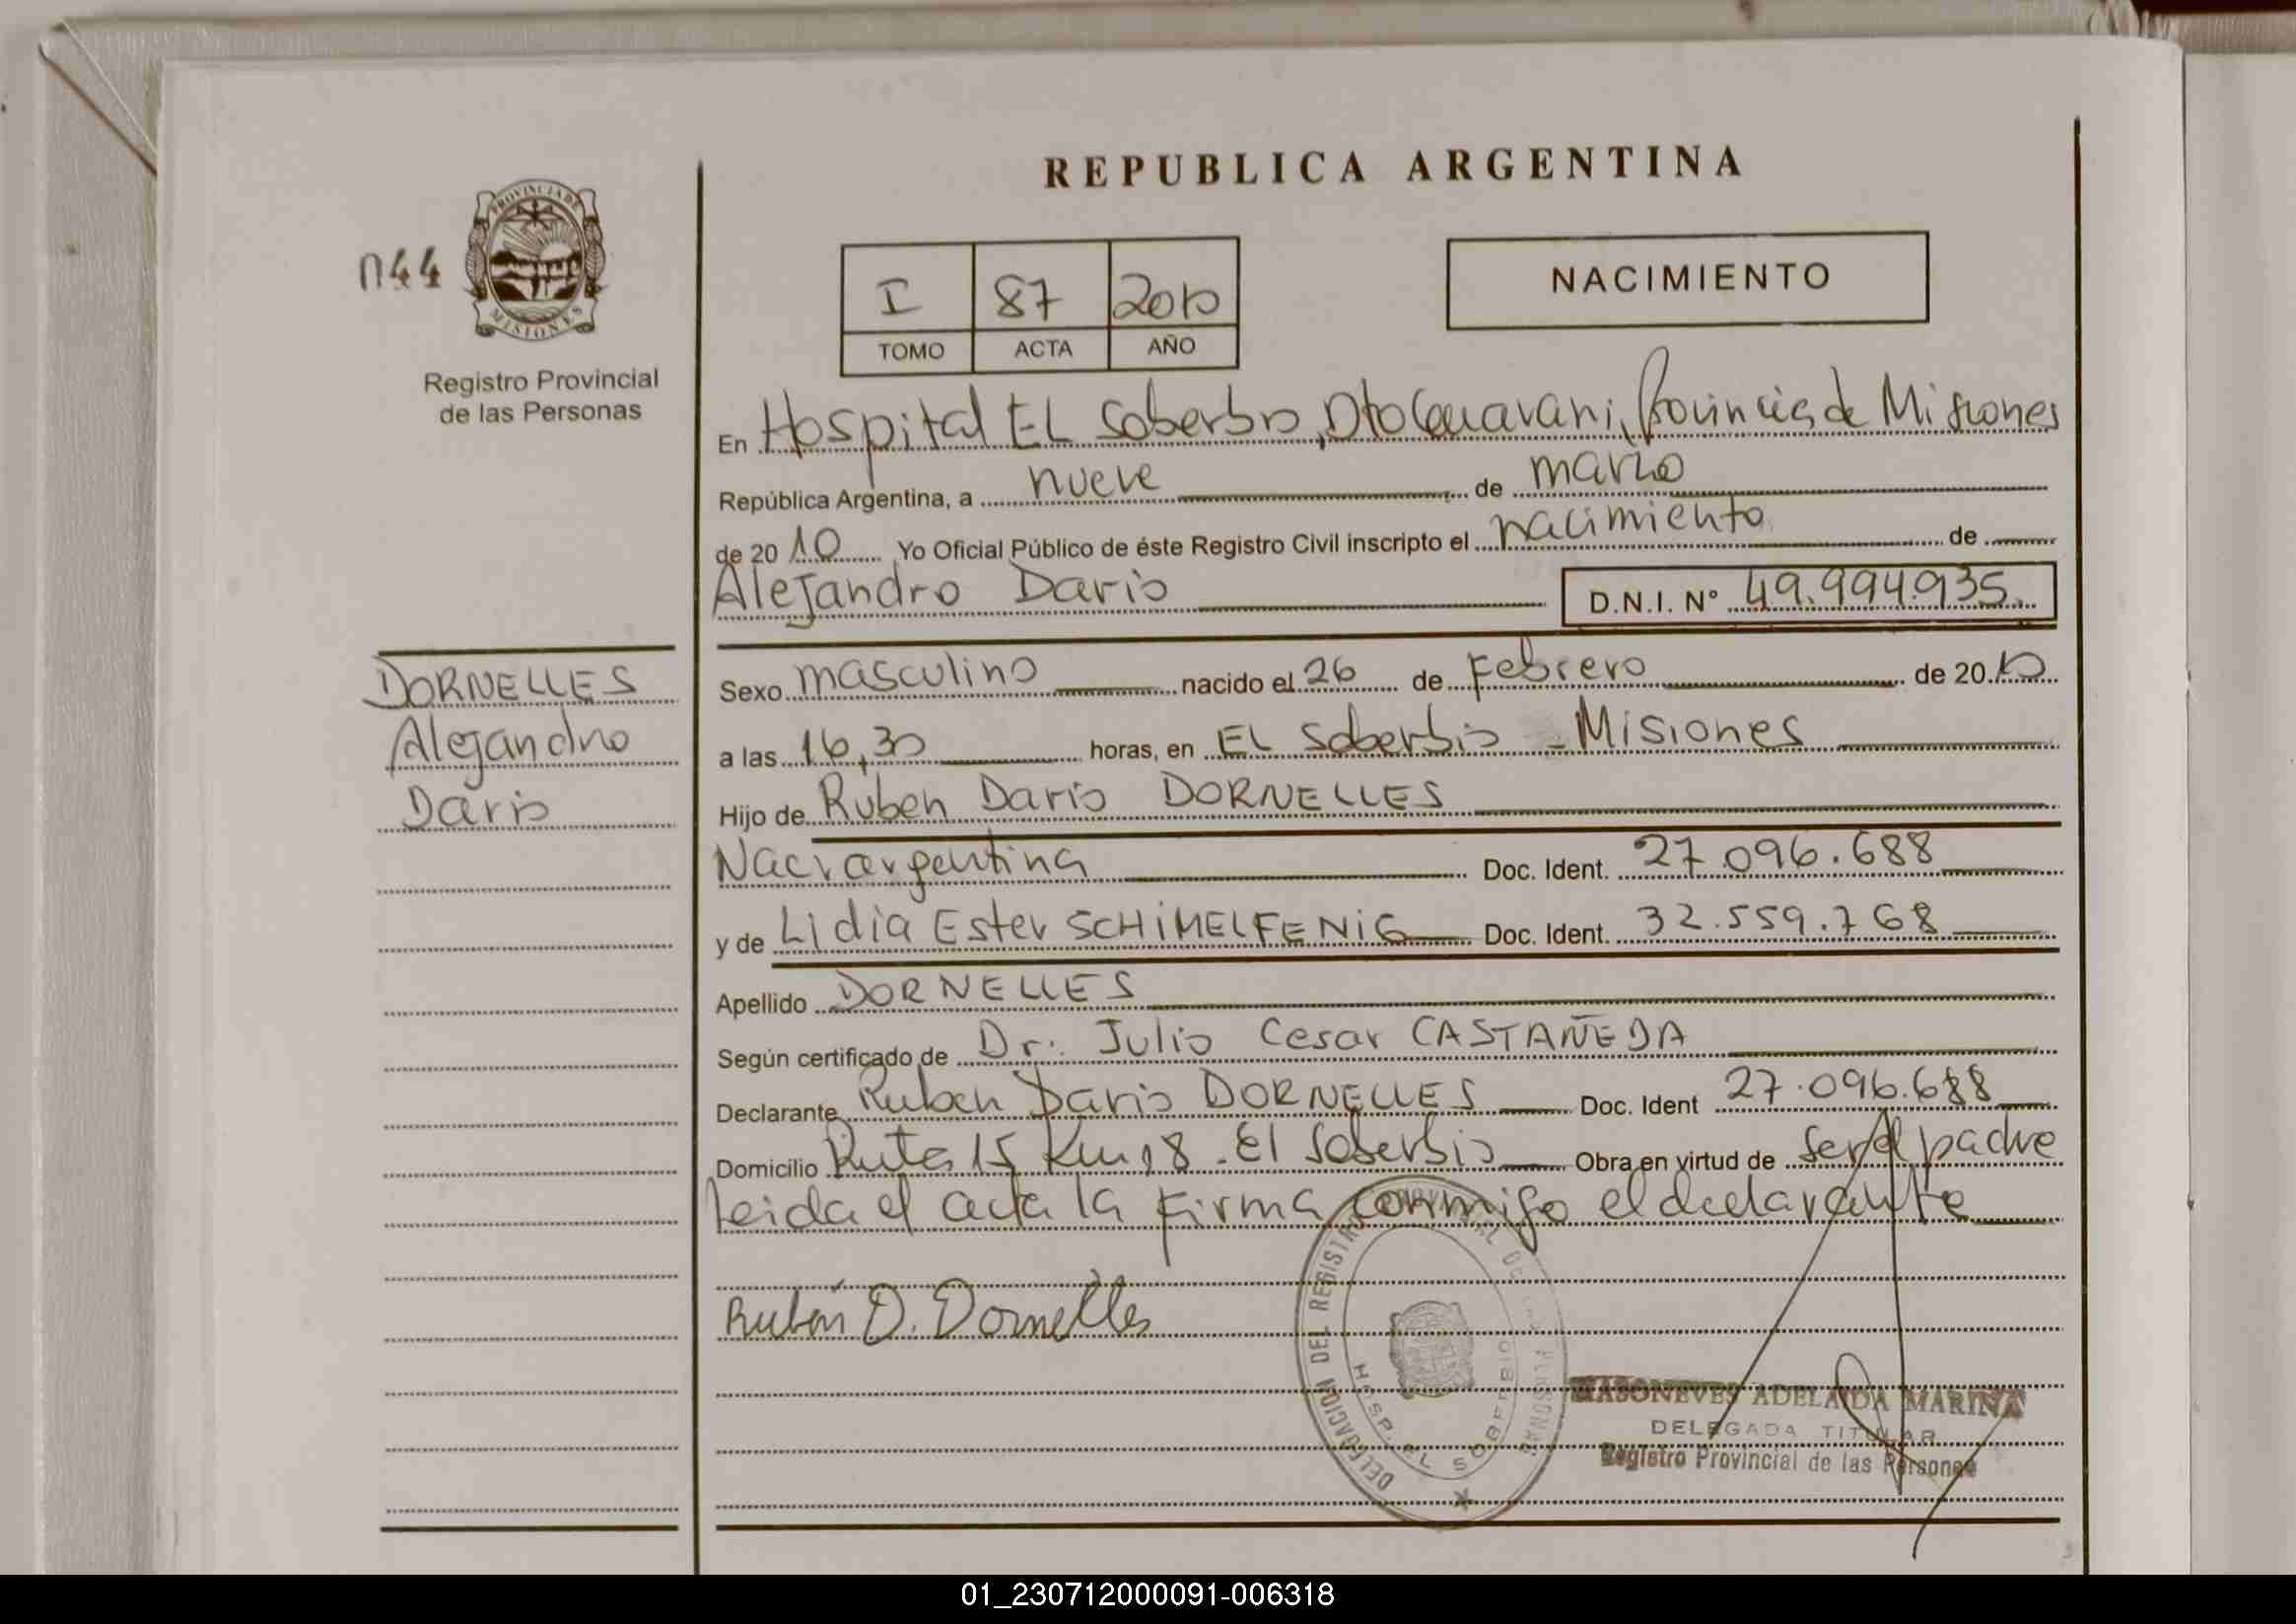 REPUBLICA ARGENTINA
n44
PROVINCIA DE
MISIONES
Registro Provincial
de las Personas
I 87 2010
TOMO ACTA AÑO
NACIMIENTO
En Hospital EL Soberbio, Dto Guarani, Provincia de Misiones
República Argentina, a nueve de marzo
de 2010 Yo Oficial Público de éste Registro Civil inscripto el nacimiento de
Alejandro Dario D.N.I. N° 49.994.935
DORNELLES
Alejandro
Dario
Sexo masculino nacido el 26 de Febrero de 2010
a las 16,30 horas, en EL Soberbio - Misiones
Hijo de Ruben Dario DORNELLES
Nac. argentina Doc. Ident. 27.096.688
y de Lidia Ester SCHIMELFENIG Doc. Ident. 32.559.768
Apellido DORNELLES
Según certificado de Dr. Julio Cesar CASTAÑEDA
Declarante Ruben Dario DORNELLES Doc. Ident 27.096.688
Domicilio Ruta 15 Km, 8 - El Soberbio Obra en virtud de ser el padre
Leida el acta la Firma conmigo el declarante
Rubén D. Dornelles
DELEGACION DEL REGISTRO PROVINCIAL DE LAS PERSONAS
HOSP. EL SOBERBIO
MASONEVES ADELAIDA MARINA
DELEGADA TITULAR
Registro Provincial de las Personas
01_230712000091-006318